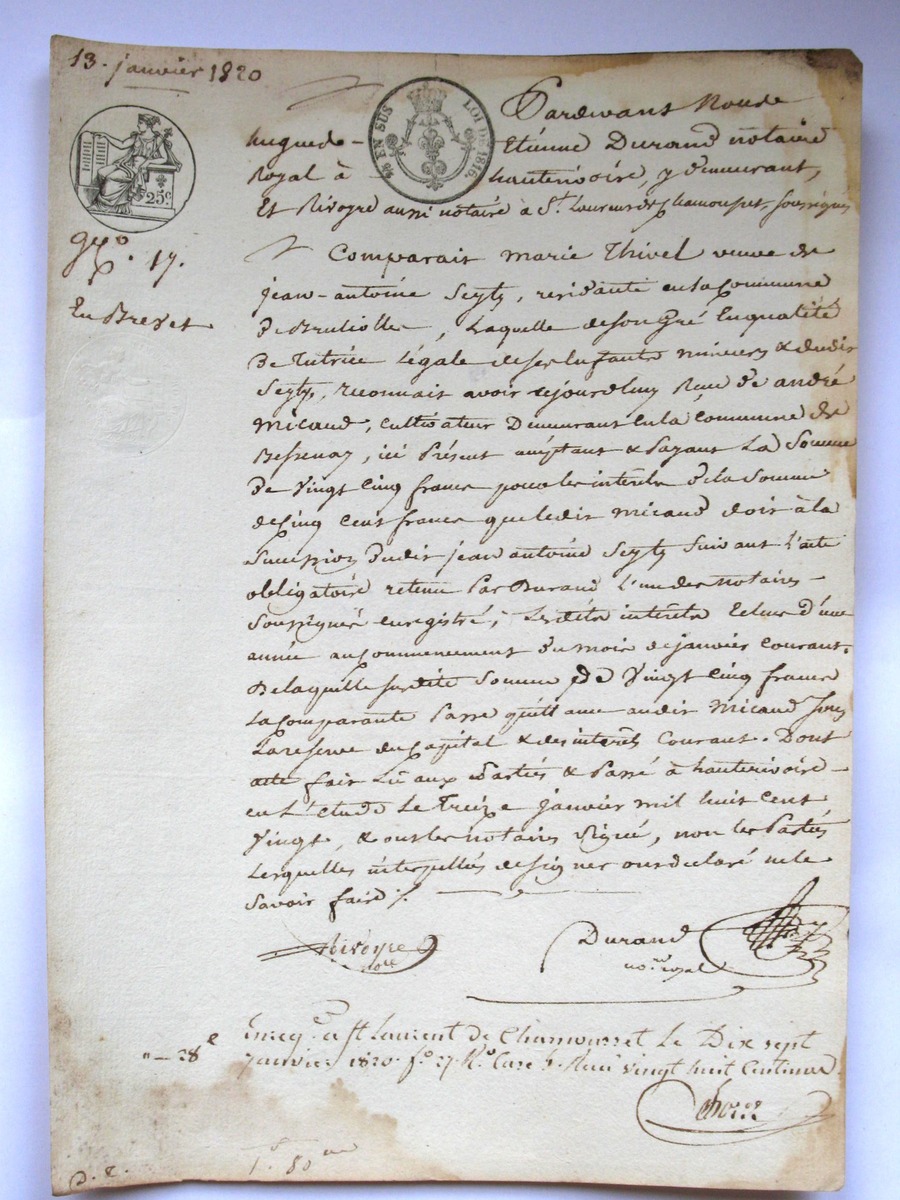 13. janvier 1820
25c
¼ EN SUS LOI DE 1816.
Pardevant Nous
hugues- Etienne Durand notaire
Royal à hauterivoire, y demeurant,
Et Rivoyre aussi notaire à St. Laurent de Chamousset, soussignés
17.
En Brevet
Comparait marie Thivel veuve de
jean-antoine Seyty, residante en la Commune
De Brulliolles, laquelle de son Gré En qualité
De Tutrice Légale de ses Enfants mineurs & dudit
Seyty, reconnait avoir cejourdhuy Reçu De andré
micaud, cultivateur Demeurant en la Commune de
Bessenay, ici Présent acceptant & Payant La Somme
De Vingt Cinq francs pour les interets De la Somme
De Cinq Cent francs que ledit micaud doit à la
Succession Dudit jean antoine Seyty Suivant L'acte
obligatoire retenu Par Durand L'un des notaires-
Soussignés enregistré; Lesdits interets Echus d'une
année au Commencement du mois de janvier Courant.
De laquelle susdite Somme De Vingt Cinq francs
La Comparante Passe quittance audit micaud Sous
La reserve du Capital & des interets Courant. Dont
acte fait Lu aux Parties & Passé à hauterivoire-
en L'Etude Le Treize janvier mil huit cent
Vingt, & ont les notaires signé, non les Parties
Lesquelles interpellées de signer ont declaré ne le
Savoir faire /.
Rivoyre
nore
Durand
no.re royal
28e
Enreg. à St Laurent de Chamousset Le Dix sept
janvier 1820. fo. 27. Ro. Case 5. Reçu vingt huit Centimes.
D. C.